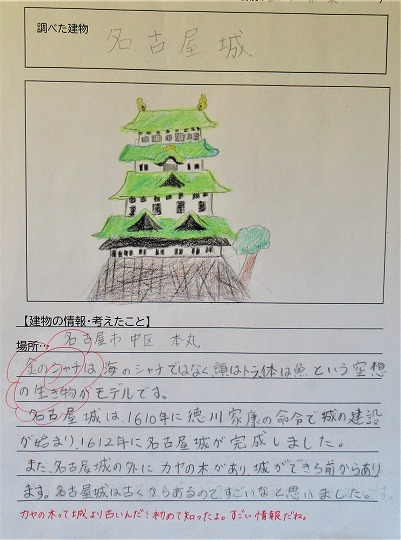 調べた建物
名古屋城
【建物の情報・考えたこと】
場所… 名古屋市中区 本丸
金のシャチは海のシャチではなく頭はトラ体は魚という空想
の生き物がモデルです。
名古屋城は、1610年に徳川家康の命令で城の建設
が始まり、1612年に名古屋城が完成しました。
また、名古屋城の外にカヤの木があり、城ができる前からあり
ます。名古屋城は古くからあるので、すごいなと思いました。
カヤの木って城より古いんだ!初めて知ったよ。すごい情報だね。